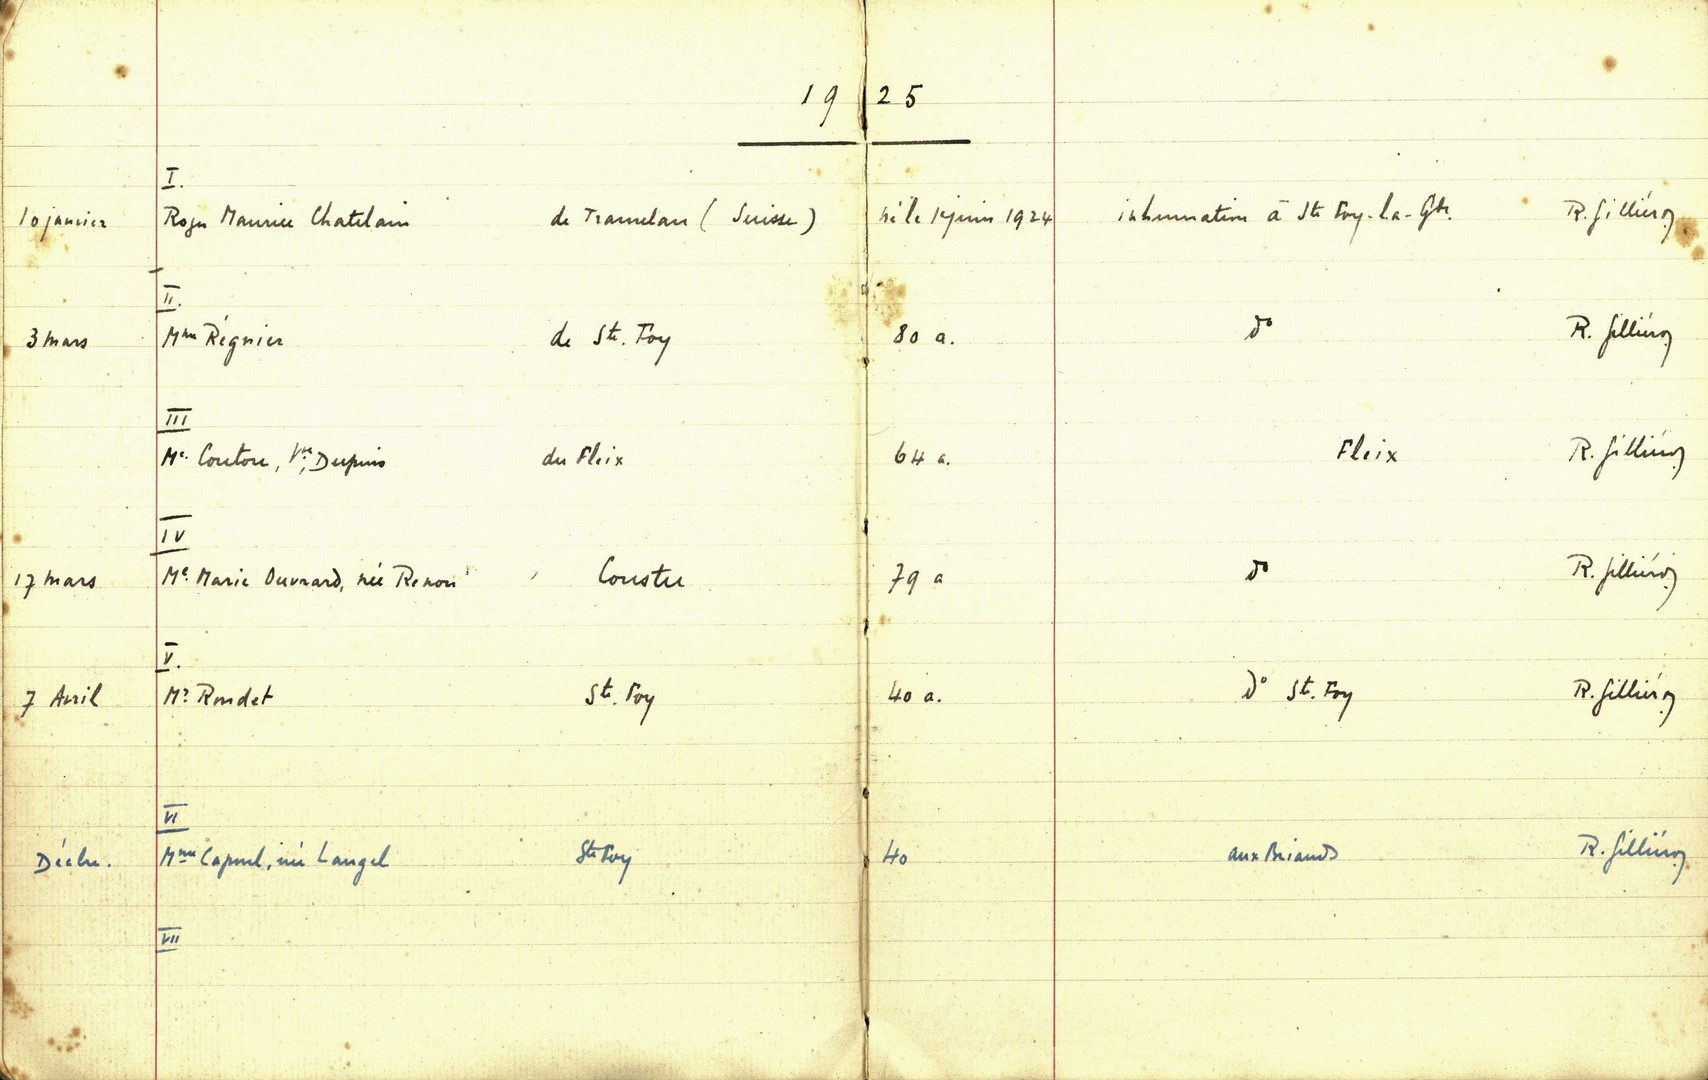 1925
I.
10 janvier Roger Maurice Chatelain de Tramelan (Suisse) né le 14 juin 1924 inhumation à Ste Foy-la-Gde. R. Gilliéron
II.
3 mars Mme Régnier de Ste. Foy 80 a. do R. Gilliéron
III
Me. Coutou, Vve Dupuis du Fleix 64 a. Fleix R. Gilliéron
IV
17 mars Me. Marie Ouvrard, née Renou Coustu 79 a do R. Gilliéron
V.
7 Avril Mr Rondet Ste. Foy 40 a. do Ste. Foy R. Gilliéron
VI
Décbre. Mme Capuel, née Langel Ste Foy 40 aux Briands R. Gilliéron
VII